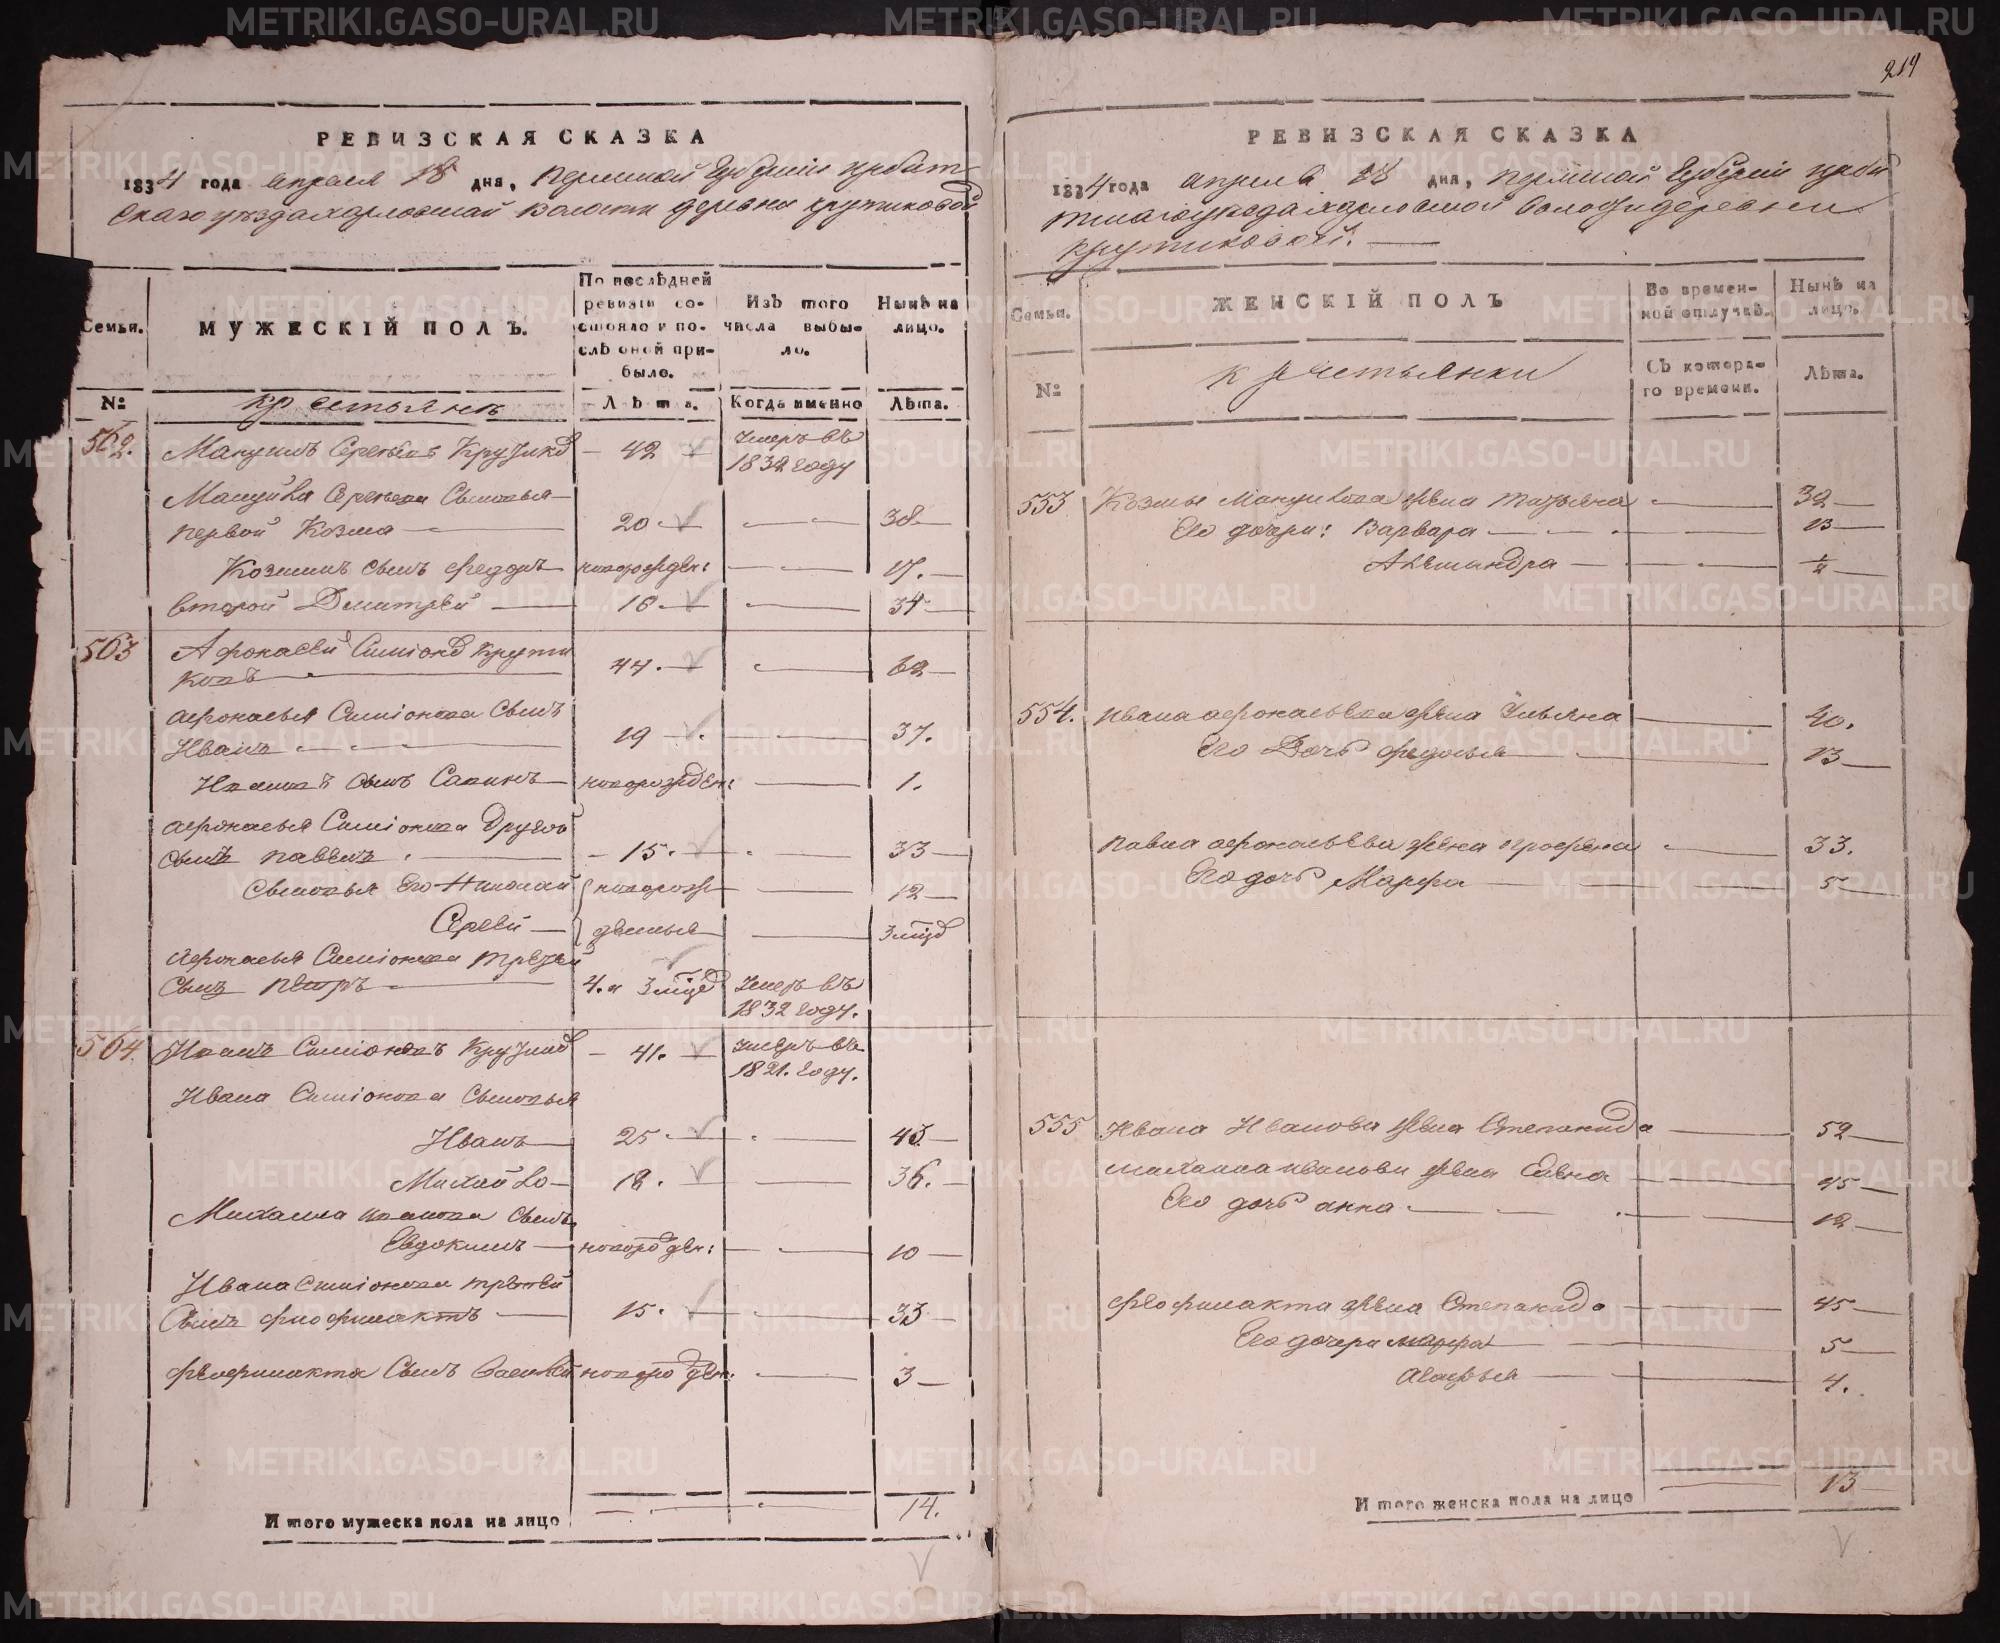 214
РЕВИЗСКАЯ СКАЗКА
1834 года апреля 18 дня, Пермской Губернии Ирбит-
скаго уезда Харловской волости деревни Крутиковой
Семьи.
МУЖЕСКІЙ ПОЛЪ.
По послѣдней ревизіи со-стояло и по-слѣ оной при-было.
Изъ того числа выбы-ло.
Нынѣ на лицо.
№
Крестьянъ
Лѣта.
Когда именно
Лѣта.
562. Мануилъ Сергеевъ Крутиковъ 42 Умеръ въ 1832 году
Мануйла Сергеева Сыновья
первой Козма 20 38
Козминъ сынъ Федоръ новорожден: 17.
второй Дмитрей 16 34
563 Афонасей Симіоновъ Крути
ковъ 44. 62
Афонасья Симіонова Сынъ
Иванъ 19 37.
Ивановъ сынъ Савинъ новорожден: 1.
Афонасья Симіонова другой
сынъ Павелъ 15. 33
Сыновья Его Николай новорож 12
Сергей денныя 3 міз
Афонасья Симіонова третей
Сынъ Петръ 4. и 3 міз Умеръ въ
1832 году.
564. Иванъ Симіоновъ Крутиковъ 41. умеръ въ
1821. году.
Ивана Симіонова Сыновья
Иванъ 25 43
Михайло 18. 36.
Михаила Иванова Сынъ
Евдокимъ новорожден: 10
Ивана Симіонова третей
Сынъ Фиофилактъ 15. 33
Феофилакта Сынъ Василей новорожден: 3
И того мужеска пола на лицо 14.
РЕВИЗСКАЯ СКАЗКА
1834 года апреля 18 дня, Пермской Губерніи Ирби
тскаго уезда Харловской волости деревни
Крутиковой.
Семьи.
ЖЕНСКІЙ ПОЛЪ
Во времен-ной отлучкѣ.
Нынѣ на лицо.
№
Крестьянки
Съ котора-го времени.
Лѣта.
553 Козмы Мануилова жена Татьяна 32
Его дочери: Варвара 13
Александра ½
554. Ивана Афонасьева жена Ульяна 40.
Его Дочь Федосья 13
Павла Афонасьева жена Афрасена 33.
Его дочь Марфа 5
555 Ивана Иванова жена Степанида 52
Михаила Иванова жена Елена 45
Его дочь Анна 12
Феофилакта жена Степанида 45
Его дочери Марфа 5
Агафья 4.
И того женска пола на лицо 13
METRIKI.GASO-URAL.RU